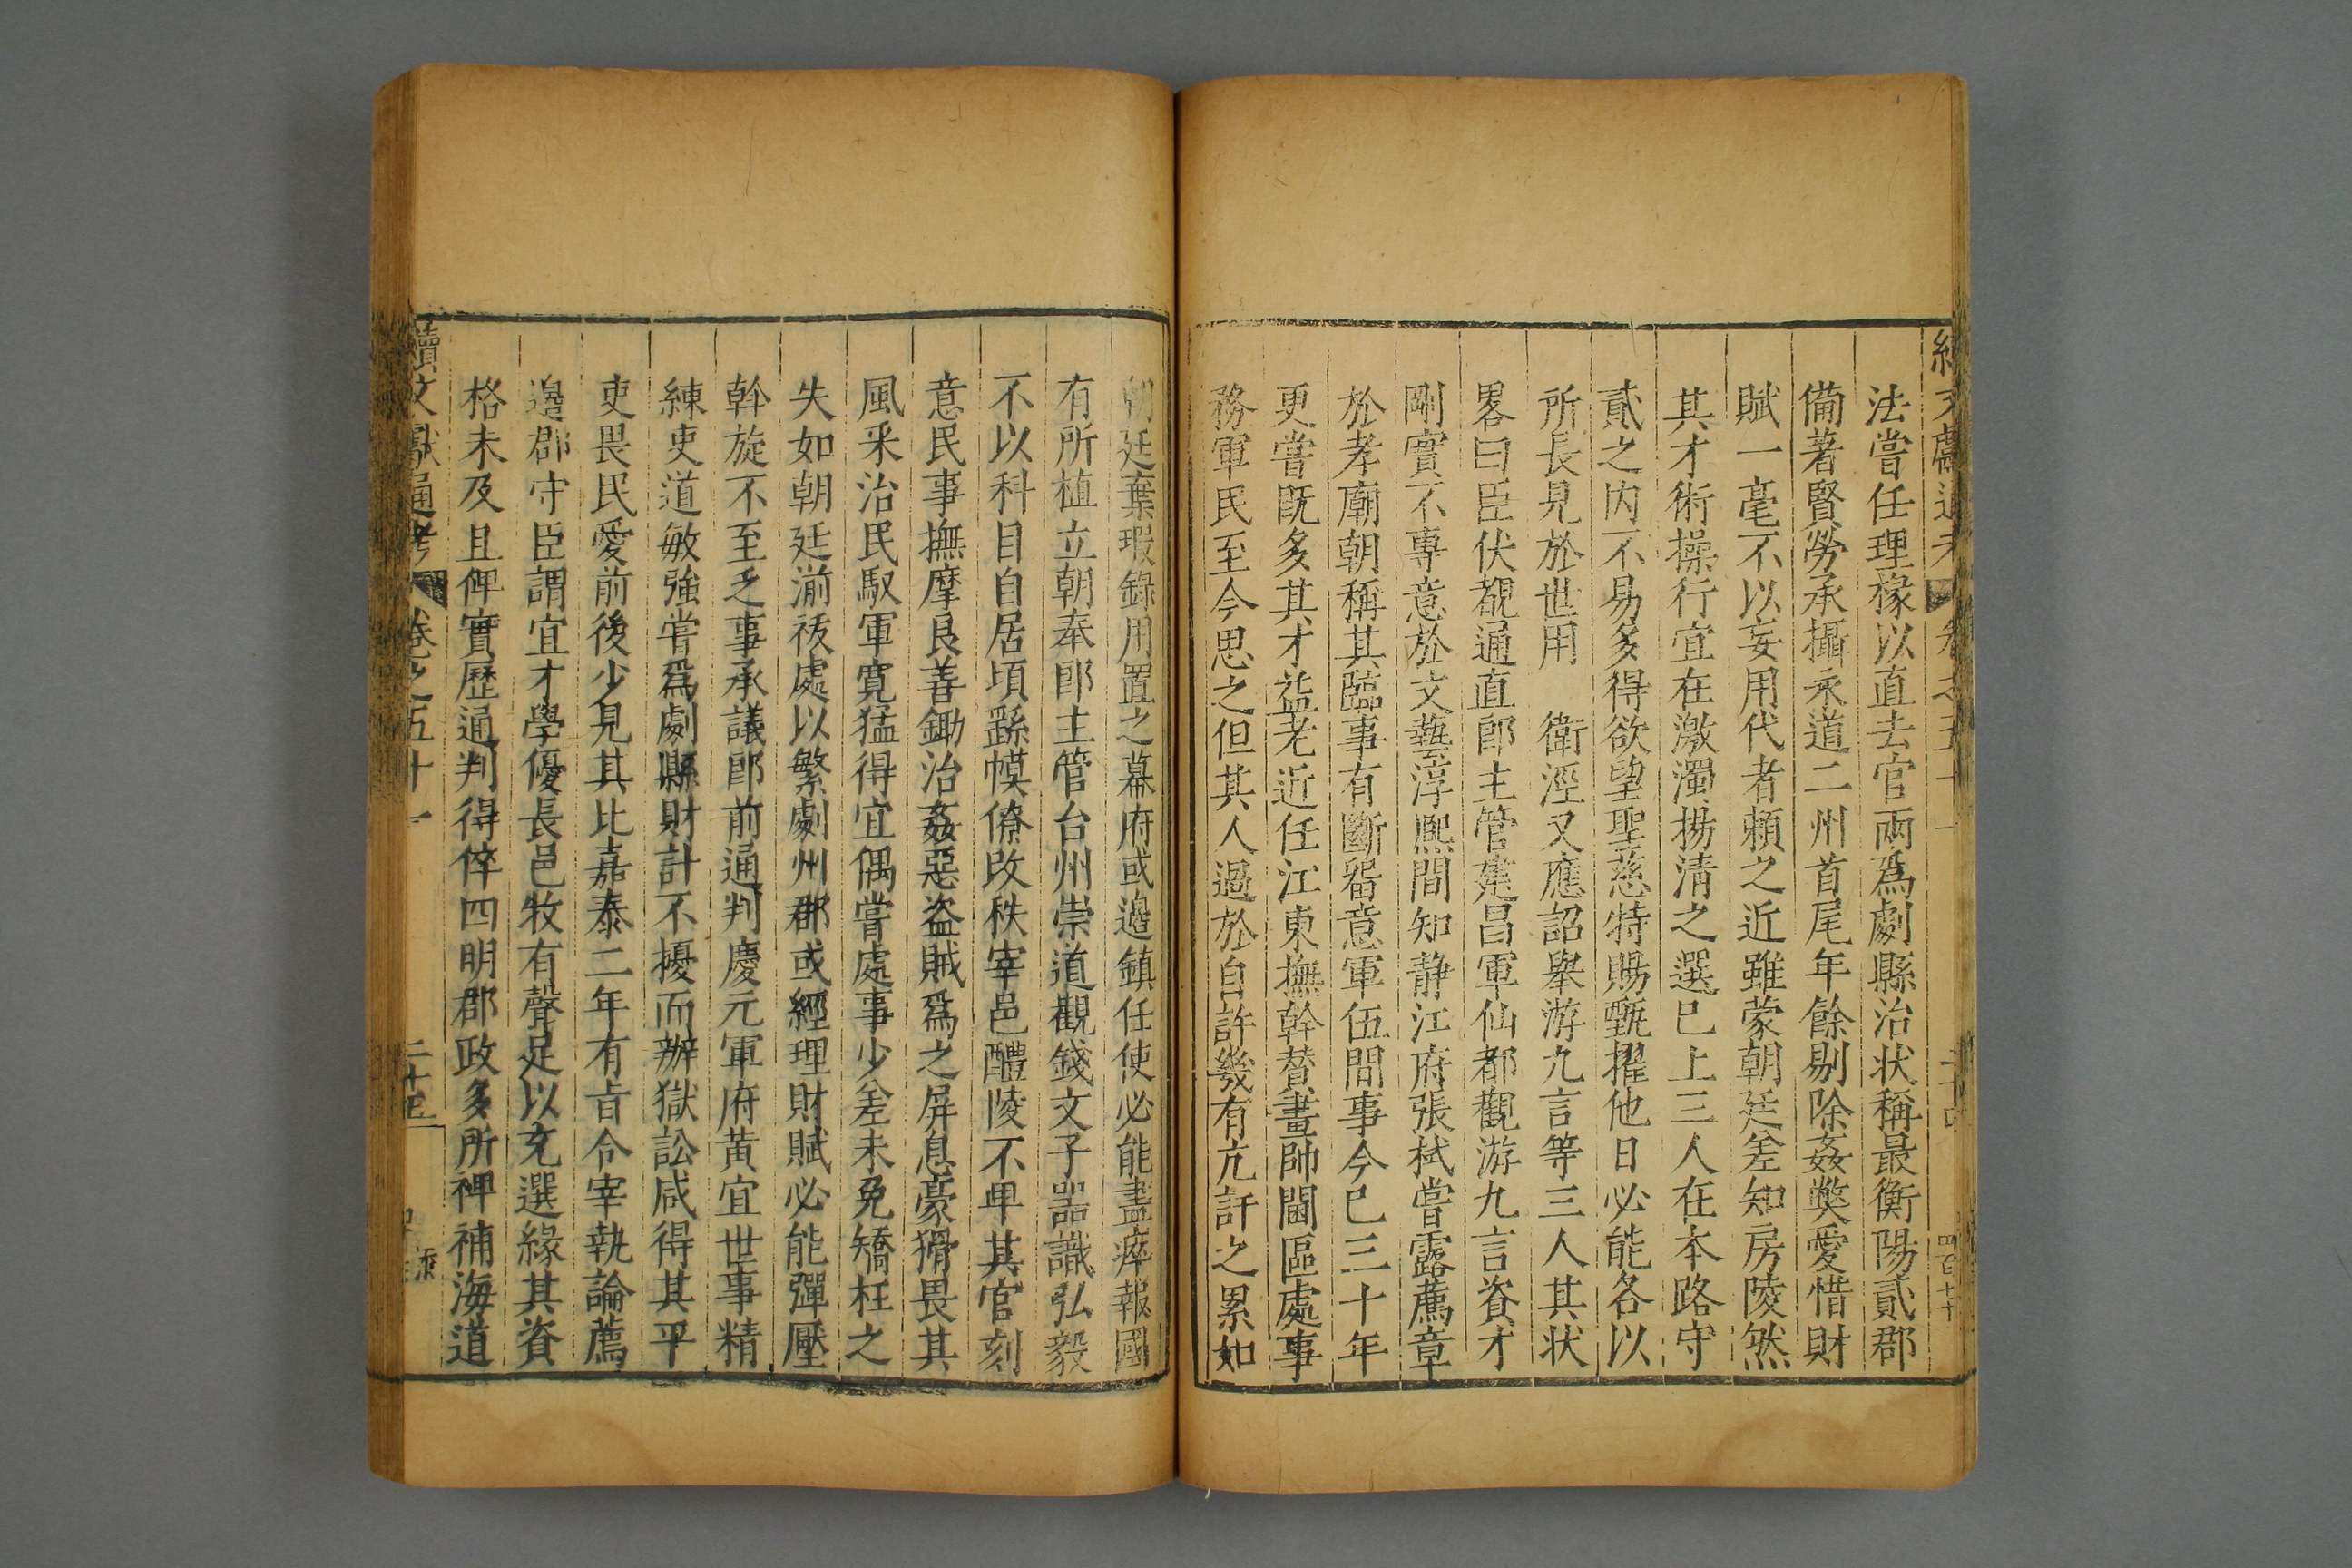 續文獻通考 卷之五十一 二十四
法嘗任理掾以直去官兩爲劇縣治状稱最衡陽貳郡
備著賢勞承攝永道二州首尾年餘剔除姦獘愛惜財
賦一毫不以妄用代者賴之近雖蒙朝廷差知房陵然
其才術操行宜在激濁揚清之選已上三人在本路守
貳之内不易多得欲望聖慈特賜甄擢他日必能各以
所長見於世用 衛涇又應詔舉游九言等三人其状
畧曰臣伏覩通直郎主管建昌軍仙都觀游九言資才
剛實不專意於文藝淳熈間知静江府張栻嘗露薦章
於孝廟朝稱其臨事有斷畱意軍伍間事今已三十年
更嘗既多其才益老近任江東撫幹替畫帥閫區處事
務軍民至今思之但其人過於自許幾有亢訐之累如
朝廷棄瑕錄用置之幕府或邉鎮任使必能盡瘁報國
有所植立朝奉郎主管台州崇道觀錢文子噐識弘毅
不以科目自居頃繇幙僚改秩宰邑醴陵不卑其官刻
意民事撫摩良善鋤治姦惡盗賊爲之屏息豪猾畏其
風采治民馭軍寛猛得宜偶嘗處事少差未免矯枉之
失如朝廷湔祓處以繁劇州郡或經理財賦必能彈壓
斡旋不至乏事承議郎前通判慶元軍府黄宜世事精
練吏道敏強嘗爲劇縣財計不擾而辦獄訟咸得其平
吏畏民愛前後少見其比嘉泰二年有旨令宰執論薦
邉郡守臣謂宜才學優長邑牧有聲足以充選緣其資
格未及且俾實歷通判得倅四明郡政多所裨補海道
續文獻通考 卷之五十一